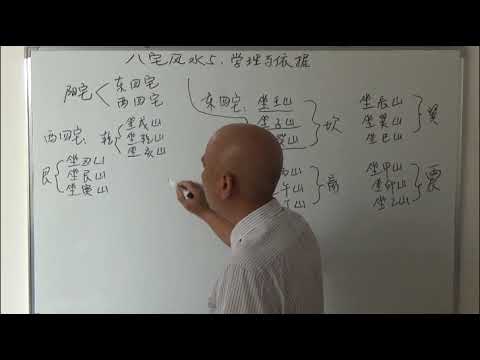 八宅风水5:学理与依据
阳宅
东四宅
西四宅
东四宅:
坐壬山
坐子山
癸山
坎
坐辰山
坐巽山
坐巳山
巽
西四宅:乾
坐戌山
坐乾山
坐亥山
艮
坐丑山
坐艮山
坐寅山
丙山
午山
山
离
坐甲山
坐卯山
坐乙山
震